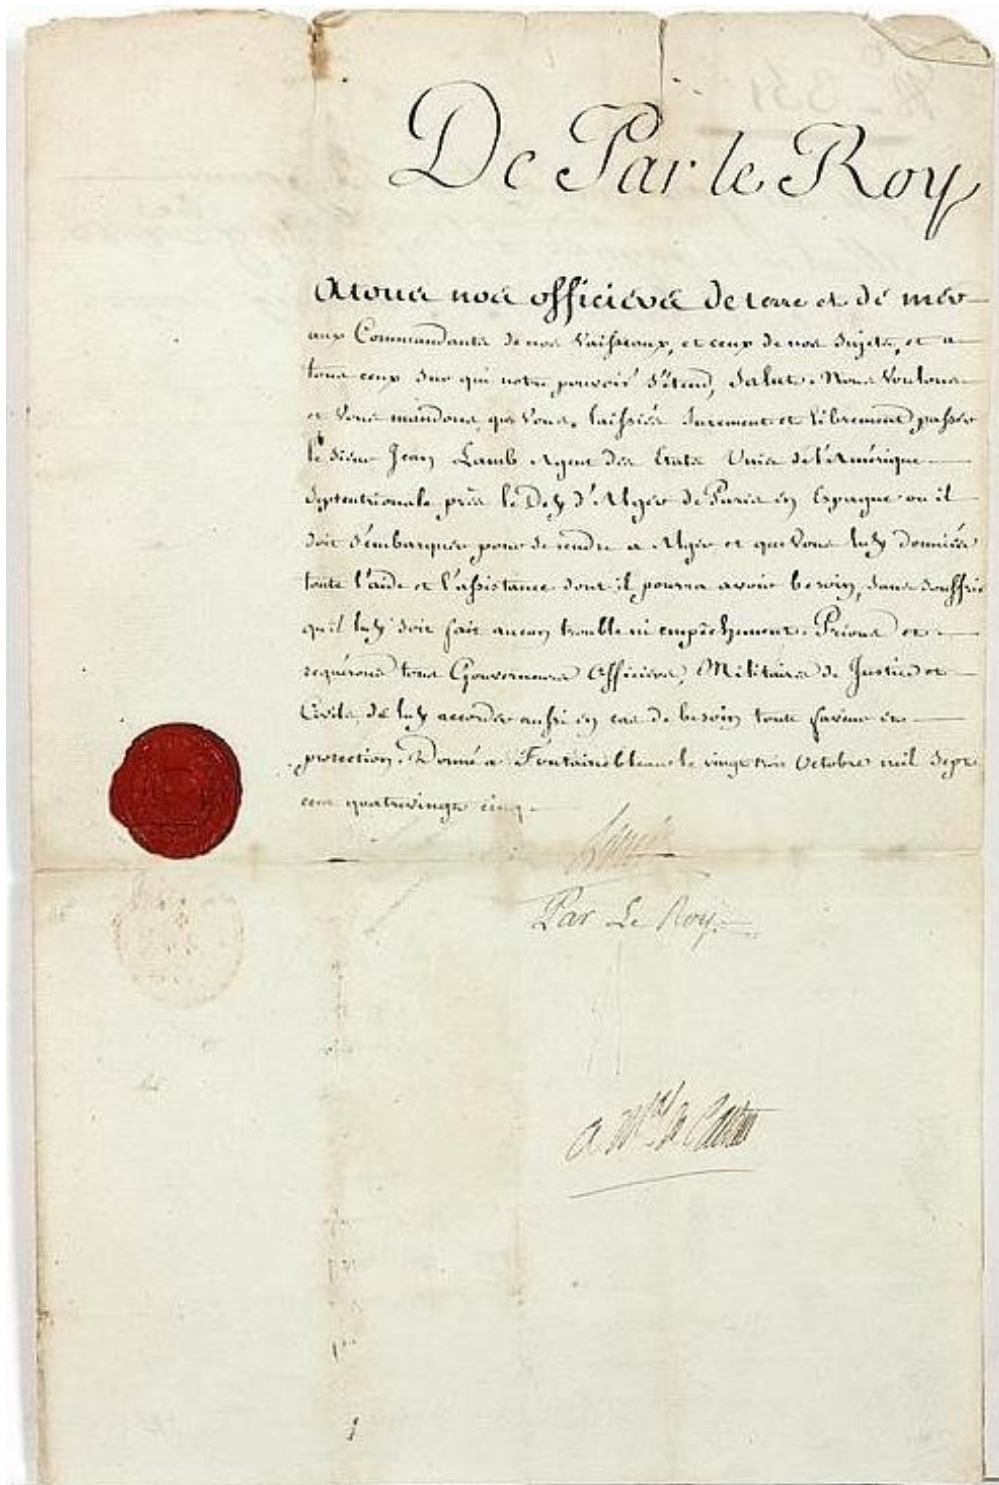 De Par le Roy
A tous nos officiers de terre et de mer
aux Commandants de nos Vaisseaux, et ceux de nos Sujets, et a
tous ceux sur qui notre pouvoir s'étend, Salut. Nous Voulons
et Vous mandons que Vous laissiés surement et librement passer
le Sieur Jean Lamb Agent des Etats Unis de l'Amérique
Septentrionale près le Dey d'Alger de Paris en Espagne ou il
doit s'embarquer pour se rendre a Alger et que Vous luy donniés
toute l'aide et l'assistance dont il pourra avoir besoin, sans souffrir
qu'il luy soit fait aucun trouble ni empêchement. Prions et
requérons tous Gouverneurs Officiers, Militaires de Justice et
Civils, de luy accorder aussi en cas de besoin toute faveur et
protection. Donné a Fontainebleau le vingt trois Octobre mil Sept
cent quatrevingt cinq
Louis
Par Le Roy